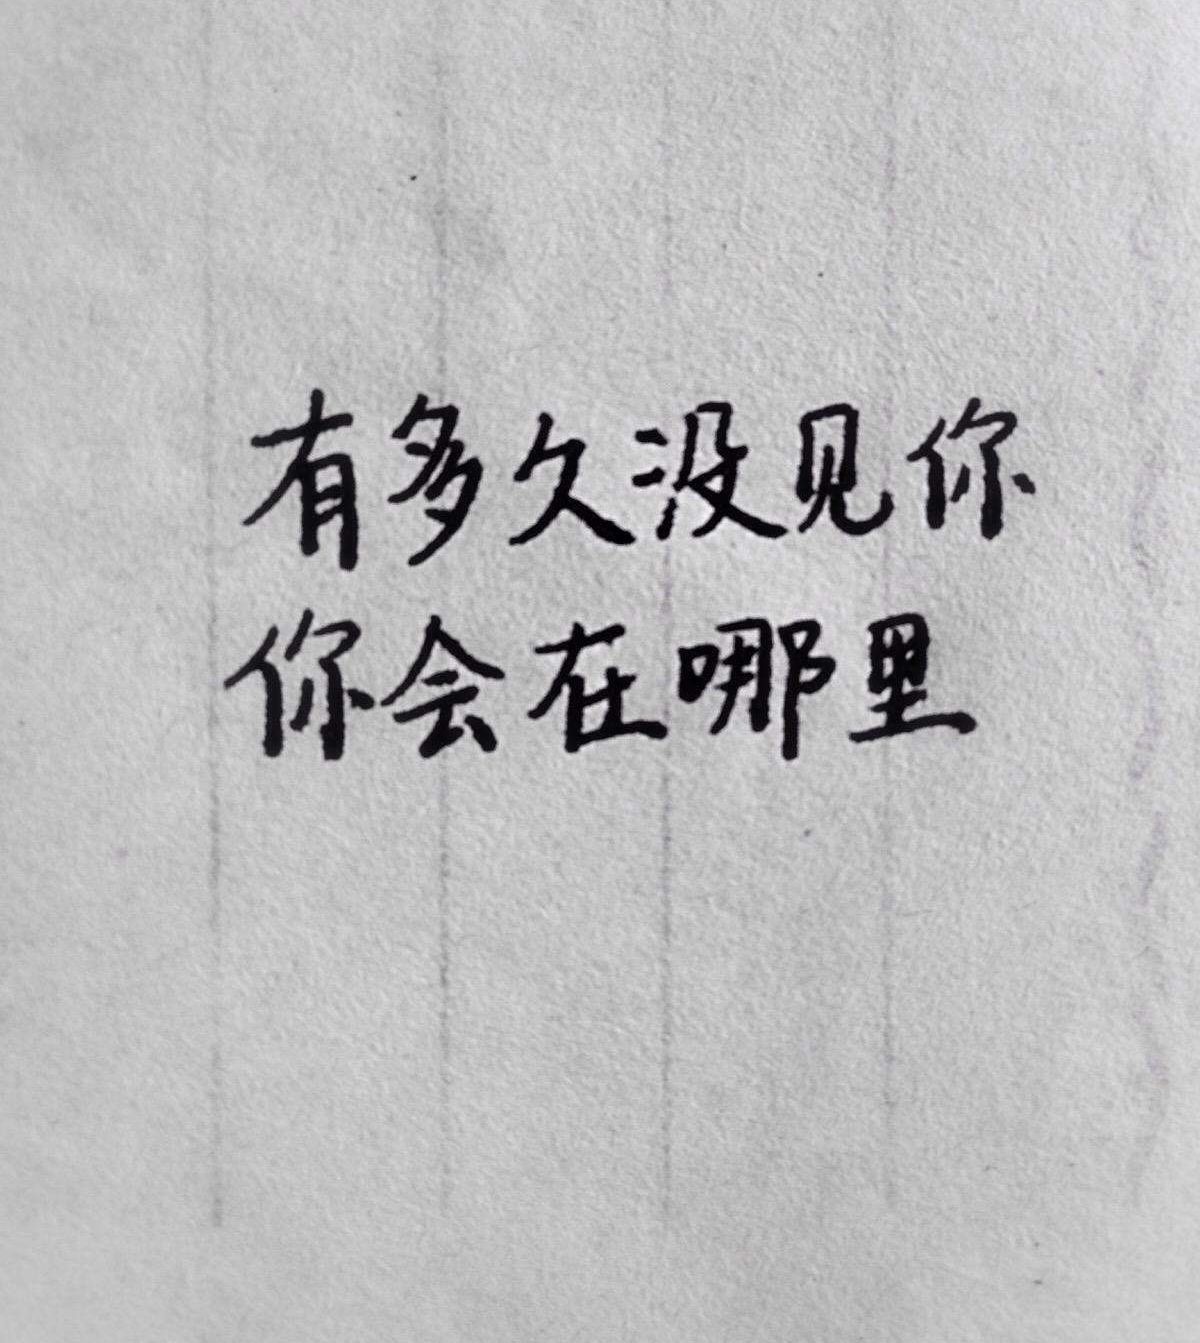 有多久没见你
你会在哪里